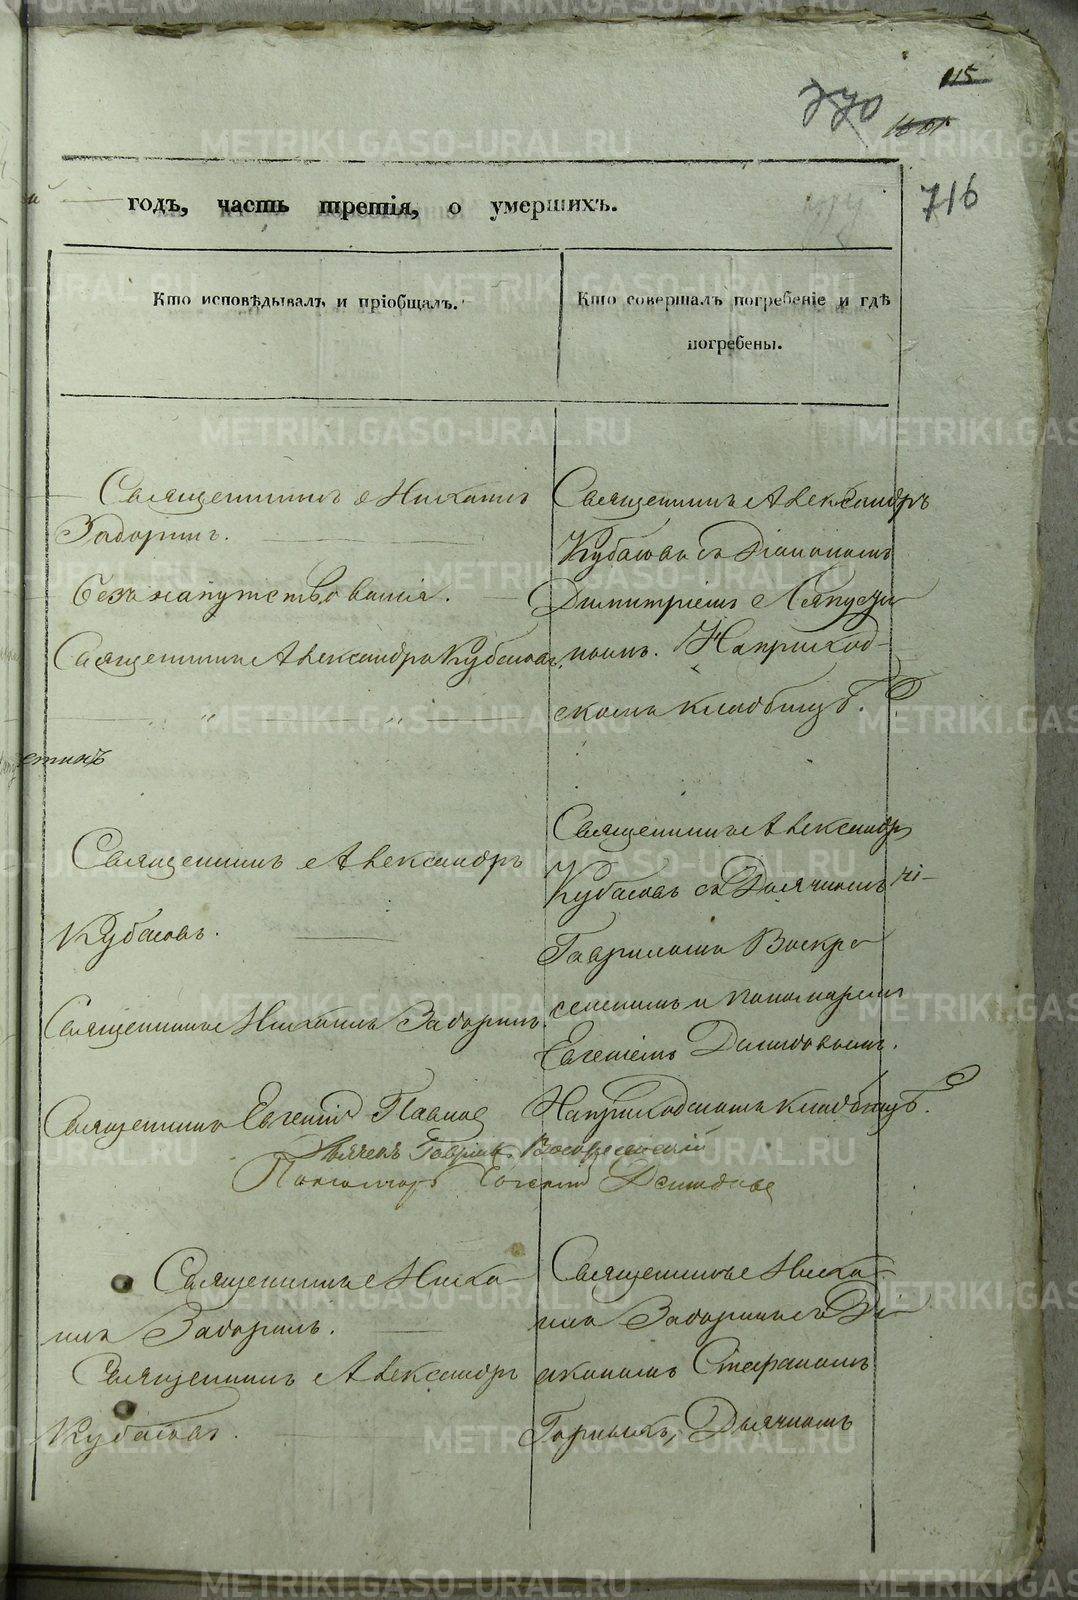 115
770
716
годъ, часть третія, о умершихъ.
Кто исповѣдывалъ и пріобщалъ.
Кто совершалъ погребеніе и гдѣ
погребены.
Священникъ Никаилъ
Задоринъ.
Безъ напутствованія.
Священникъ Александръ Кубасовъ.
〃 〃
Священникъ Александръ
Кубасовъ съ Діакономъ
Димитріемъ Ляпусти
нымъ. На приход-
скомъ кладбищѣ.
стихъ
Священникъ Александръ
Кубасовъ.
Священникъ Задоринъ.
Священникъ Александръ
Кубасовъ съ Дьячкомъ
Гавриломъ Воскре
сенскимъ и пономаремъ
Евгеніемъ Давидовымъ.
На приходскомъ кладбищѣ.
Священникъ Евгеній Павлов
Дьячекъ Гавріилъ Воскресенскій
Пономарь Евгеній
Священникъ
Задоринъ.
Священникъ Александръ
Кубасовъ.
Священникъ
Задоринъ съ Ді
акономъ Стефаномъ
Дьячкомъ
METRIKI.GASO-URAL.RU